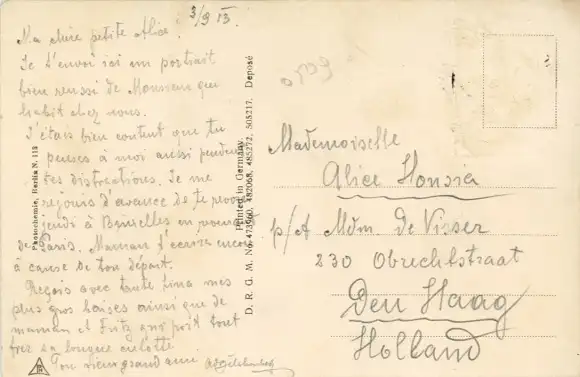 3/9 13.
Ma chère petite Alice!
Je t'envoi ici un portrait
bien reussi de Monsieur qui
habit chez vous.
J'étais bien content que tu
penses à moi aussi pendent
tes distractions. Je me
rejouis d'avance de te revoir
jeudi à Bruxelles en
de Paris. Maman t'ecrire encore
à cause de ton départ.
Reçois avec tante mes
plus gros baises ainsi que de
maman et Fritz
longue culotte
Ton vieux grand ami
Photochemie, Berlin N. 113
D. R. G. M. No. 473960, 482068, 485272, 505217. Deposé
Printed in Germany
Mademoiselle
Alice
p/A Mdm. de Visser
230 Obrechtstraat
Den Haag
Holland